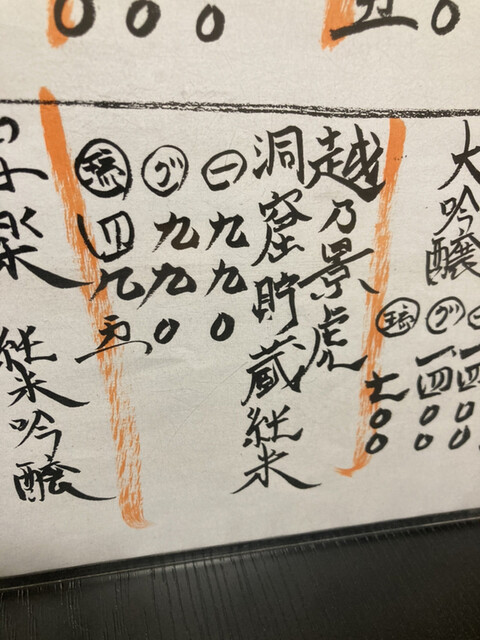 五〇
〇〇〇
大吟醸
㊀一四〇〇
グ一四〇〇
七〇〇
越乃景虎
洞窟貯蔵純米
㊀九九〇
グ九九〇
琉四九五
純米吟醸